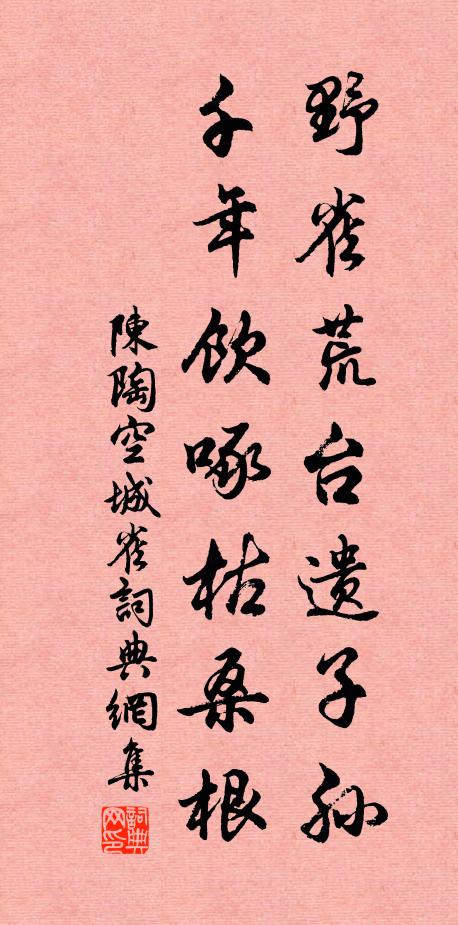 野雀荒台遗子孙
千年飲啄枯桑根
陳陶空城雀詞典網集
詞典网印